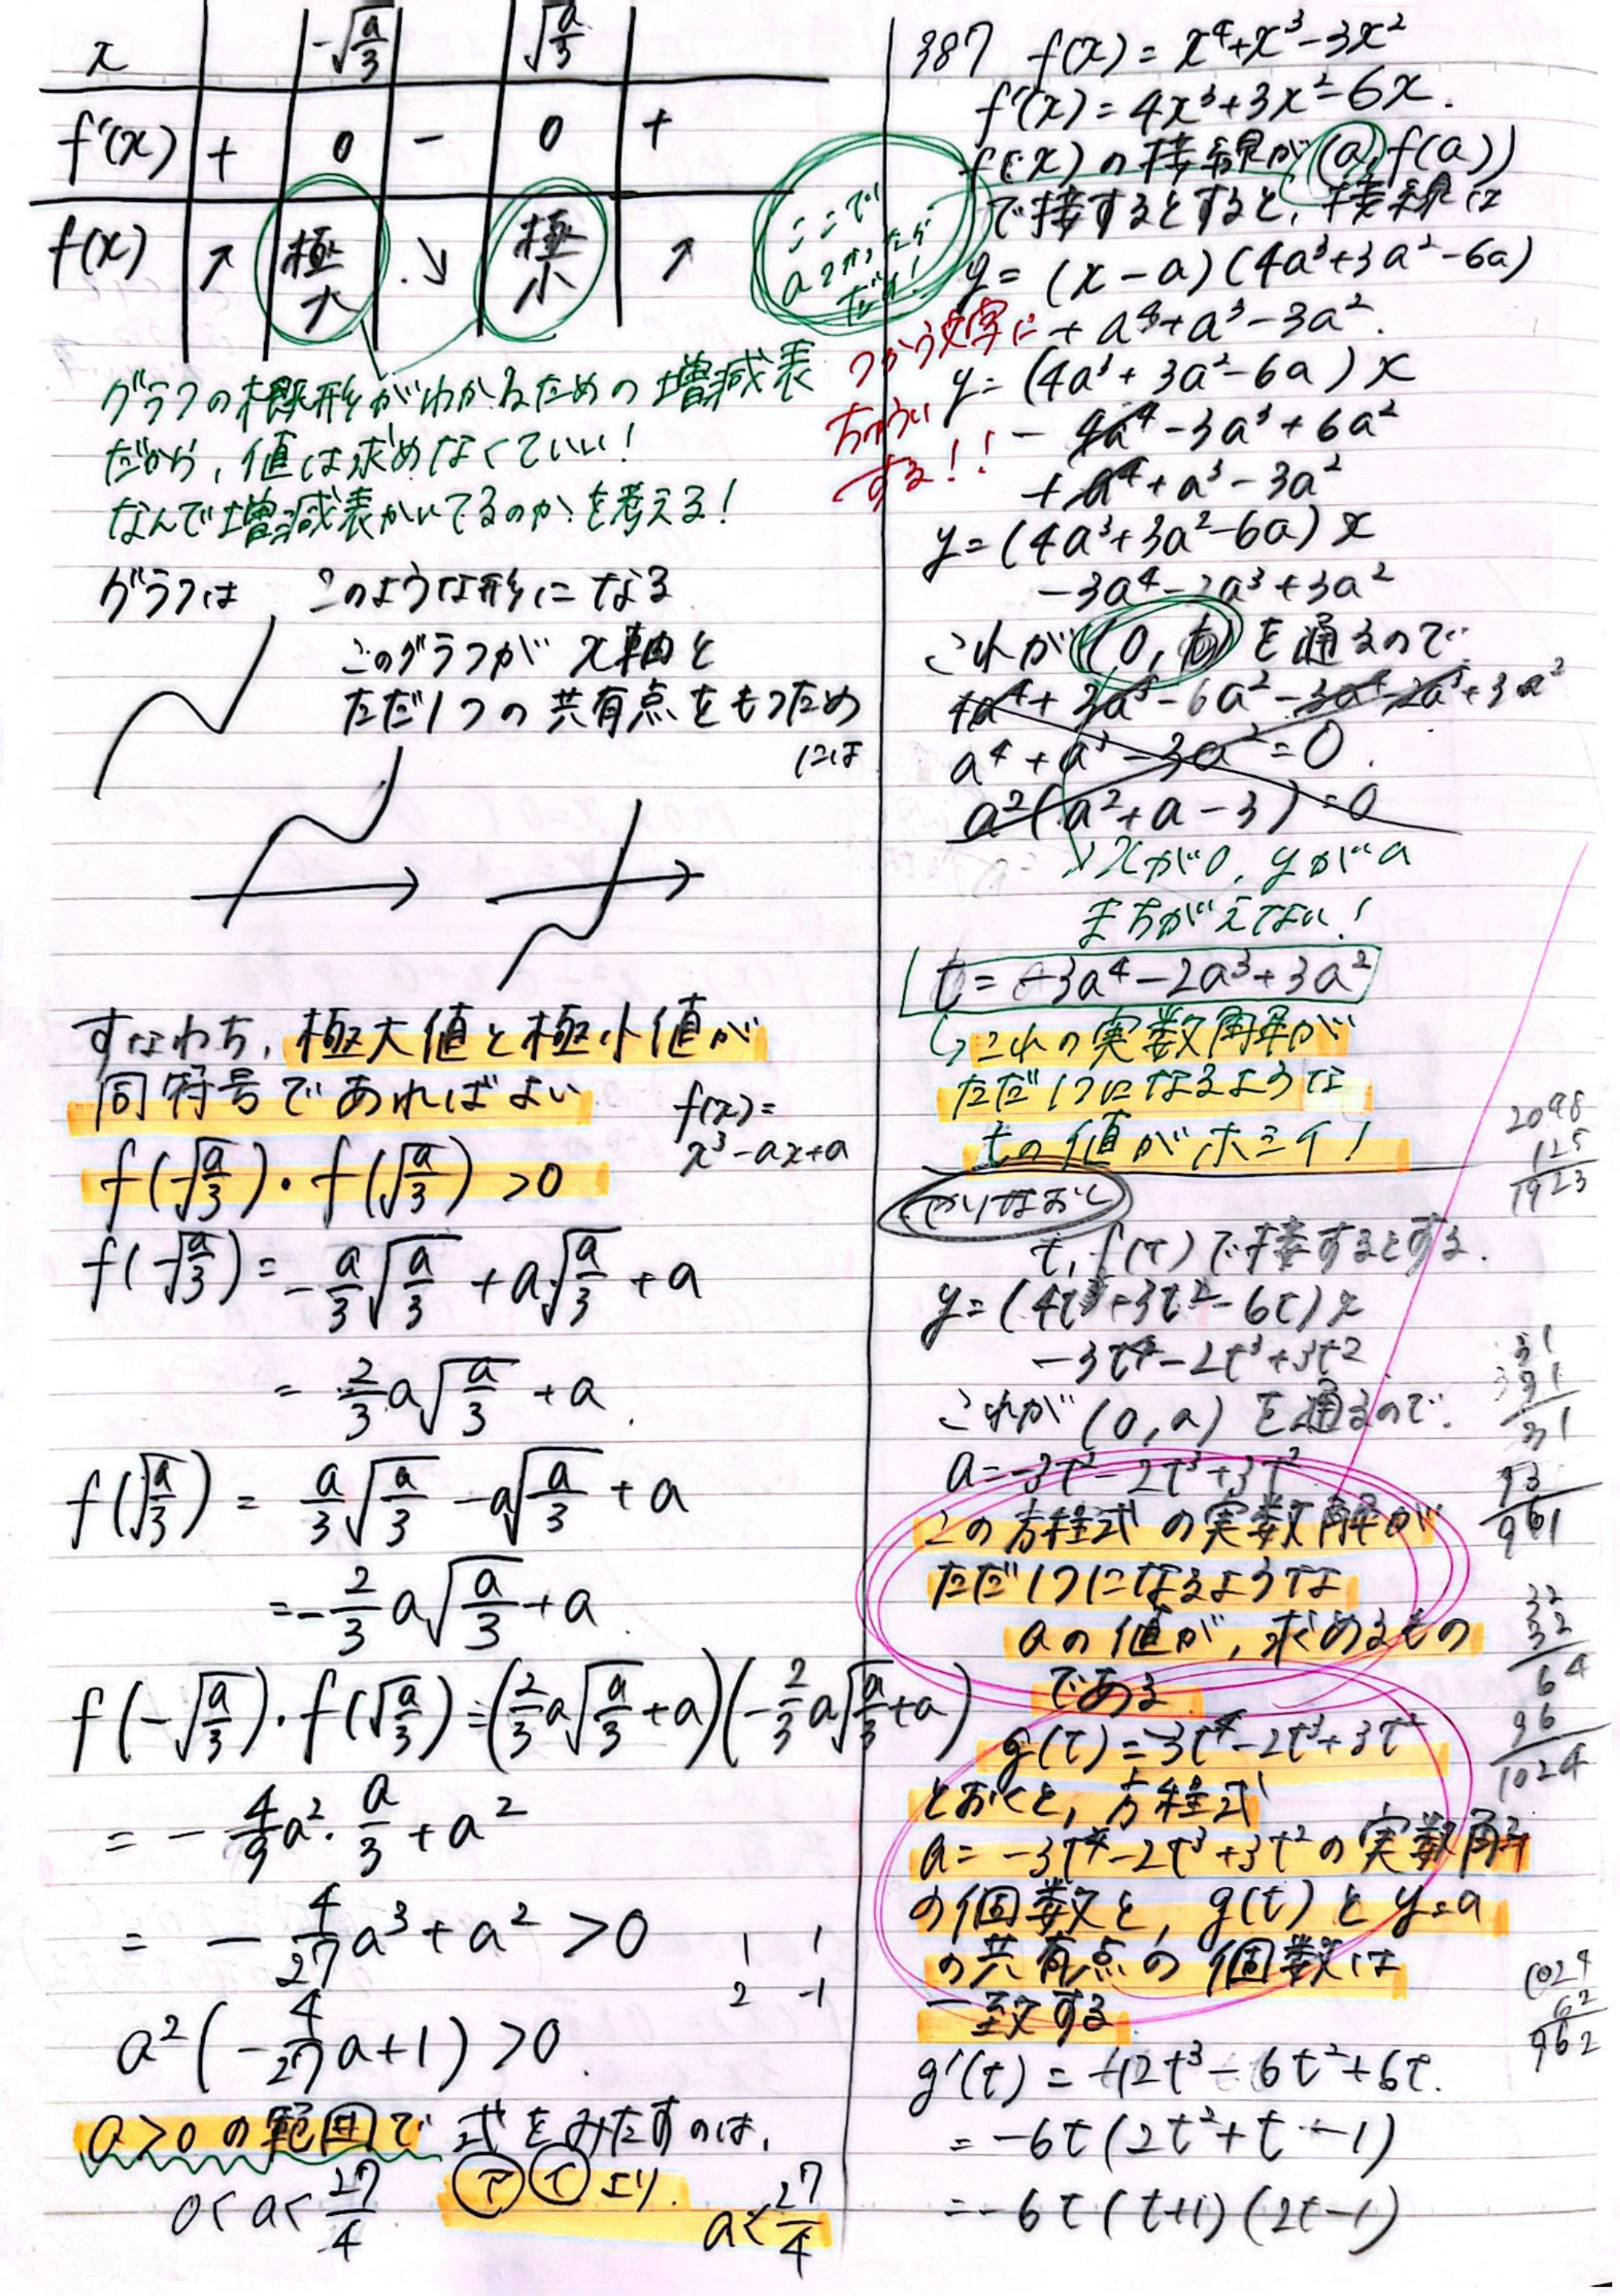 x -√a/3 √a/3
f'(x) + 0 - 0 +
f(x) ↗ 極大 ↘ 極小 ↗
グラフの概形がわかるための増減表
だから、値は求めなくていい!
なんで増減表かいてるのかを考える!
グラフは このような形になる
このグラフが x軸と
ただ1つの共有点をもつため
には
すなわち、極大値と極小値が
同符号であればよい
f(x)=
x³-ax+a
f(-√a/3)・f(√a/3)>0
f(-√a/3)=-a/3√a/3+a√a/3+a
=2/3a√a/3+a
f(√a/3)=a/3√a/3-a√a/3+a
=-2/3a√a/3+a
f(-√a/3)・f(√a/3)=(2/3a√a/3+a)(-2/3a√a/3+a)
=-4/9a²・a/3+a²
=-4/27a³+a²>0
1 1
2 -1
a²(-4/27a+1)>0
a>0の範囲で式をみたすのは、
0<a<27/4
㋐㋑より a<27/4
387 f(x)=x⁴+x³-3x²
f'(x)=4x³+3x²-6x.
f(x)の接線が(a,f(a))
で接するとすると、接線は
ここで
aつかったら
だめ!
y=(x-a)(4a³+3a²-6a)
+a⁴+a³-3a².
つかう文字に
ちゅうい
する!!
y=(4a³+3a²-6a)x
-4a⁴-3a³+6a²
+a⁴+a³-3a²
y=(4a³+3a²-6a)x
-3a⁴-2a³+3a²
これが(0,t)を通るので
4a⁴+3a³-6a²-3a⁴-2a³+3a²
a⁴+a³-3a²=0.
a²(a²+a-3)=0
xが0、yがa
まちがえてない!
t=-3a⁴-2a³+3a²
↳これの実数解が
ただ1つになるような
tの値がホシイ!
やりなおし
t,f(t)で接するとする.
y=(4t³+3t²-6t)x
-3t⁴-2t³+3t²
これが(0,a)を通るので.
a=-3t²-2t³+3t²
この方程式の実数解が
ただ1つになるような
aの値が、求めるもの
である
g(t)=-3t⁴-2t³+3t²
とおくと、方程式
a=-3t⁴-2t³+3t²の実数解
の個数と、g(t)とy=a
の共有点の個数は
一致する
g'(t)=-12t³-6t²+6t.
=-6t(2t²+t-1)
=-6t(t+1)(2t-1)
2098
125
1923
31
31
31
93
961
32
32
64
96
1024
1024
62
962